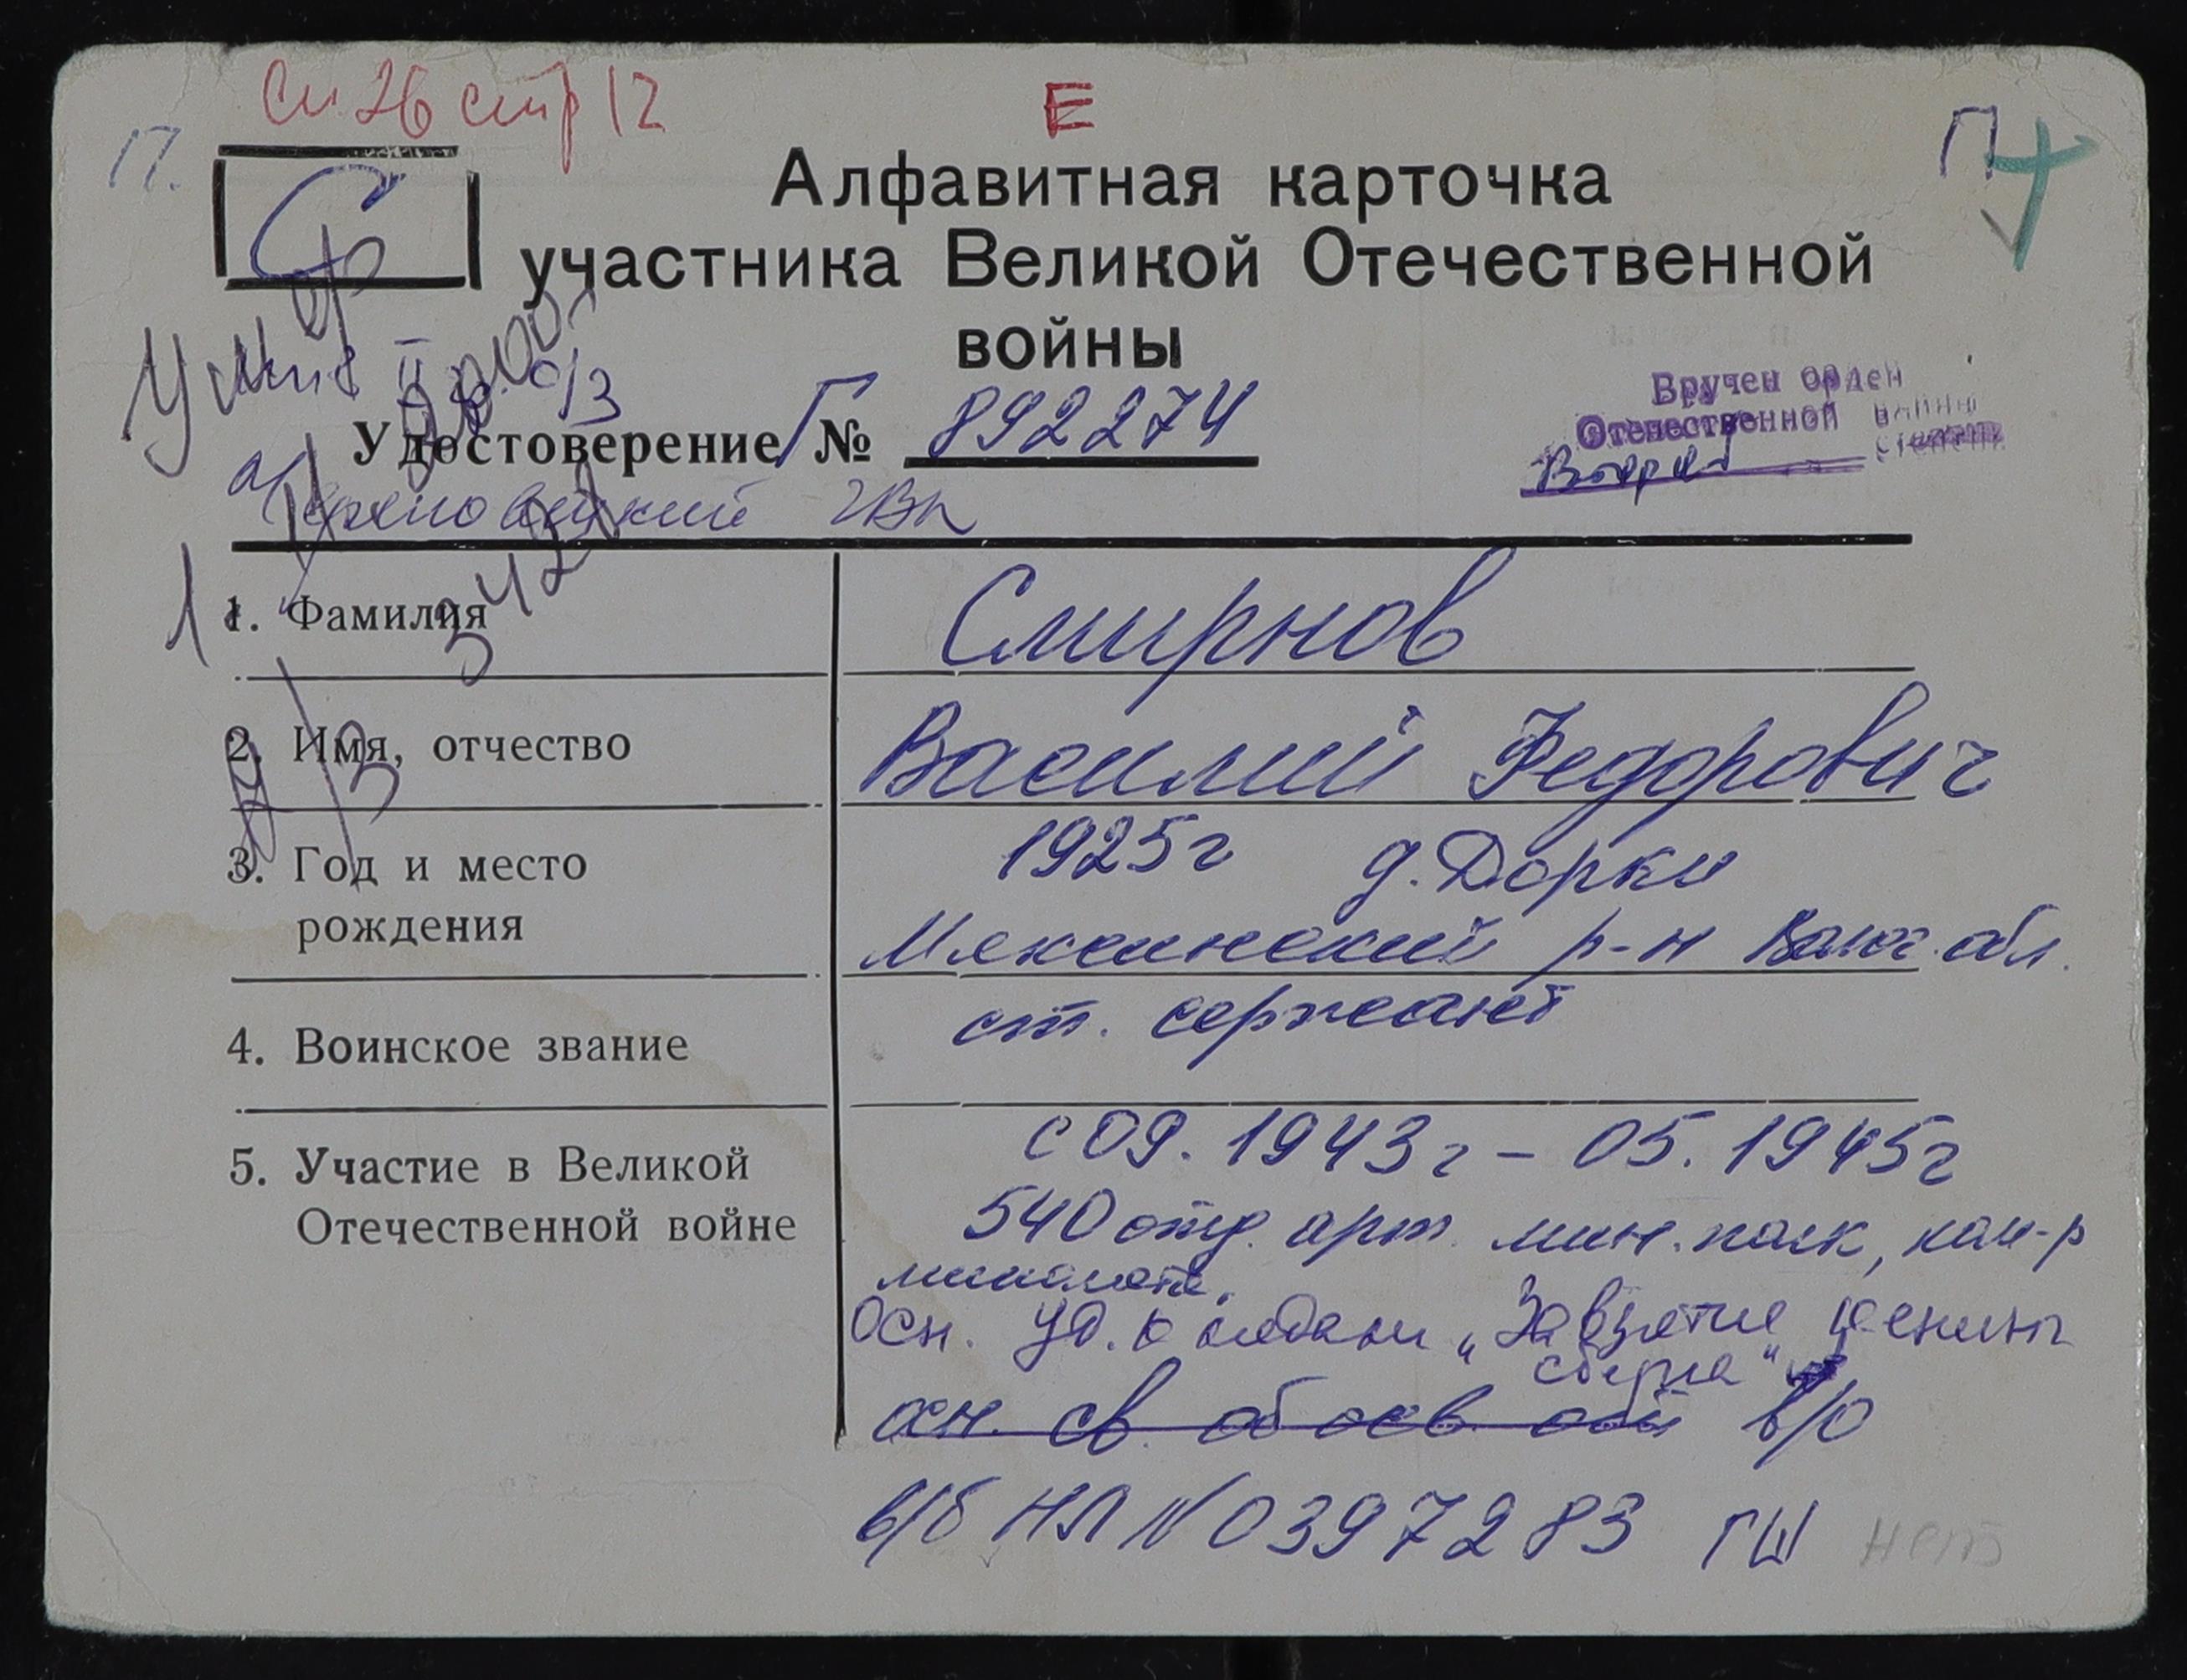 Сп 26 стр 12
Е
П.
П
С
Алфавитная карточка
участника Великой Отечественной
войны
Умер
Вручен орден
Отечественной войны
степени
Удостоверение Г № 892274
ГВК
1. Фамилия Смирнов
2. Имя, отчество Василий Федорович
3. Год и место 1925г д. Дорки
рождения Мяксинский р-н Волог. обл.
4. Воинское звание ст. сержант
5. Участие в Великой с 09.1943г – 05.1945г
Отечественной войне 540 отд. арт. мин. полк, ком-р
миномета.
Осн. уд. к медали "За взятие Кениг
сберга"
осн. св. об осв. обл в/о
в/б НЛ № 0397283 ГШ нет